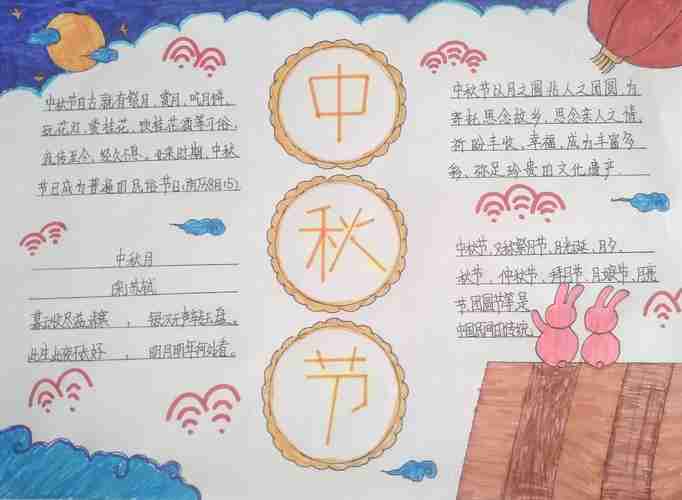 中秋节
中秋节自古就有祭月、赏月、吃月饼、
玩花灯、赏桂花、饮桂花酒等习俗,
流传至今,经久不息。宋时期,中秋
节已成为普遍的民俗节日(农历8月15)
中秋月
宋苏轼
暮云收尽溢清寒,银汉无声转玉盘。
此生此夜不长好,明月明年何处看。
中秋节以月之圆兆人之团圆,为
寄托思念故乡,思念亲人之情,
祈盼丰收、幸福,成为丰富多
彩、弥足珍贵的文化遗产.
中秋节,又称祭月节、月光诞、月夕、
秋节、仲秋节、拜月节、月娘节、月亮
节、团圆节等是
中国民间的传统.